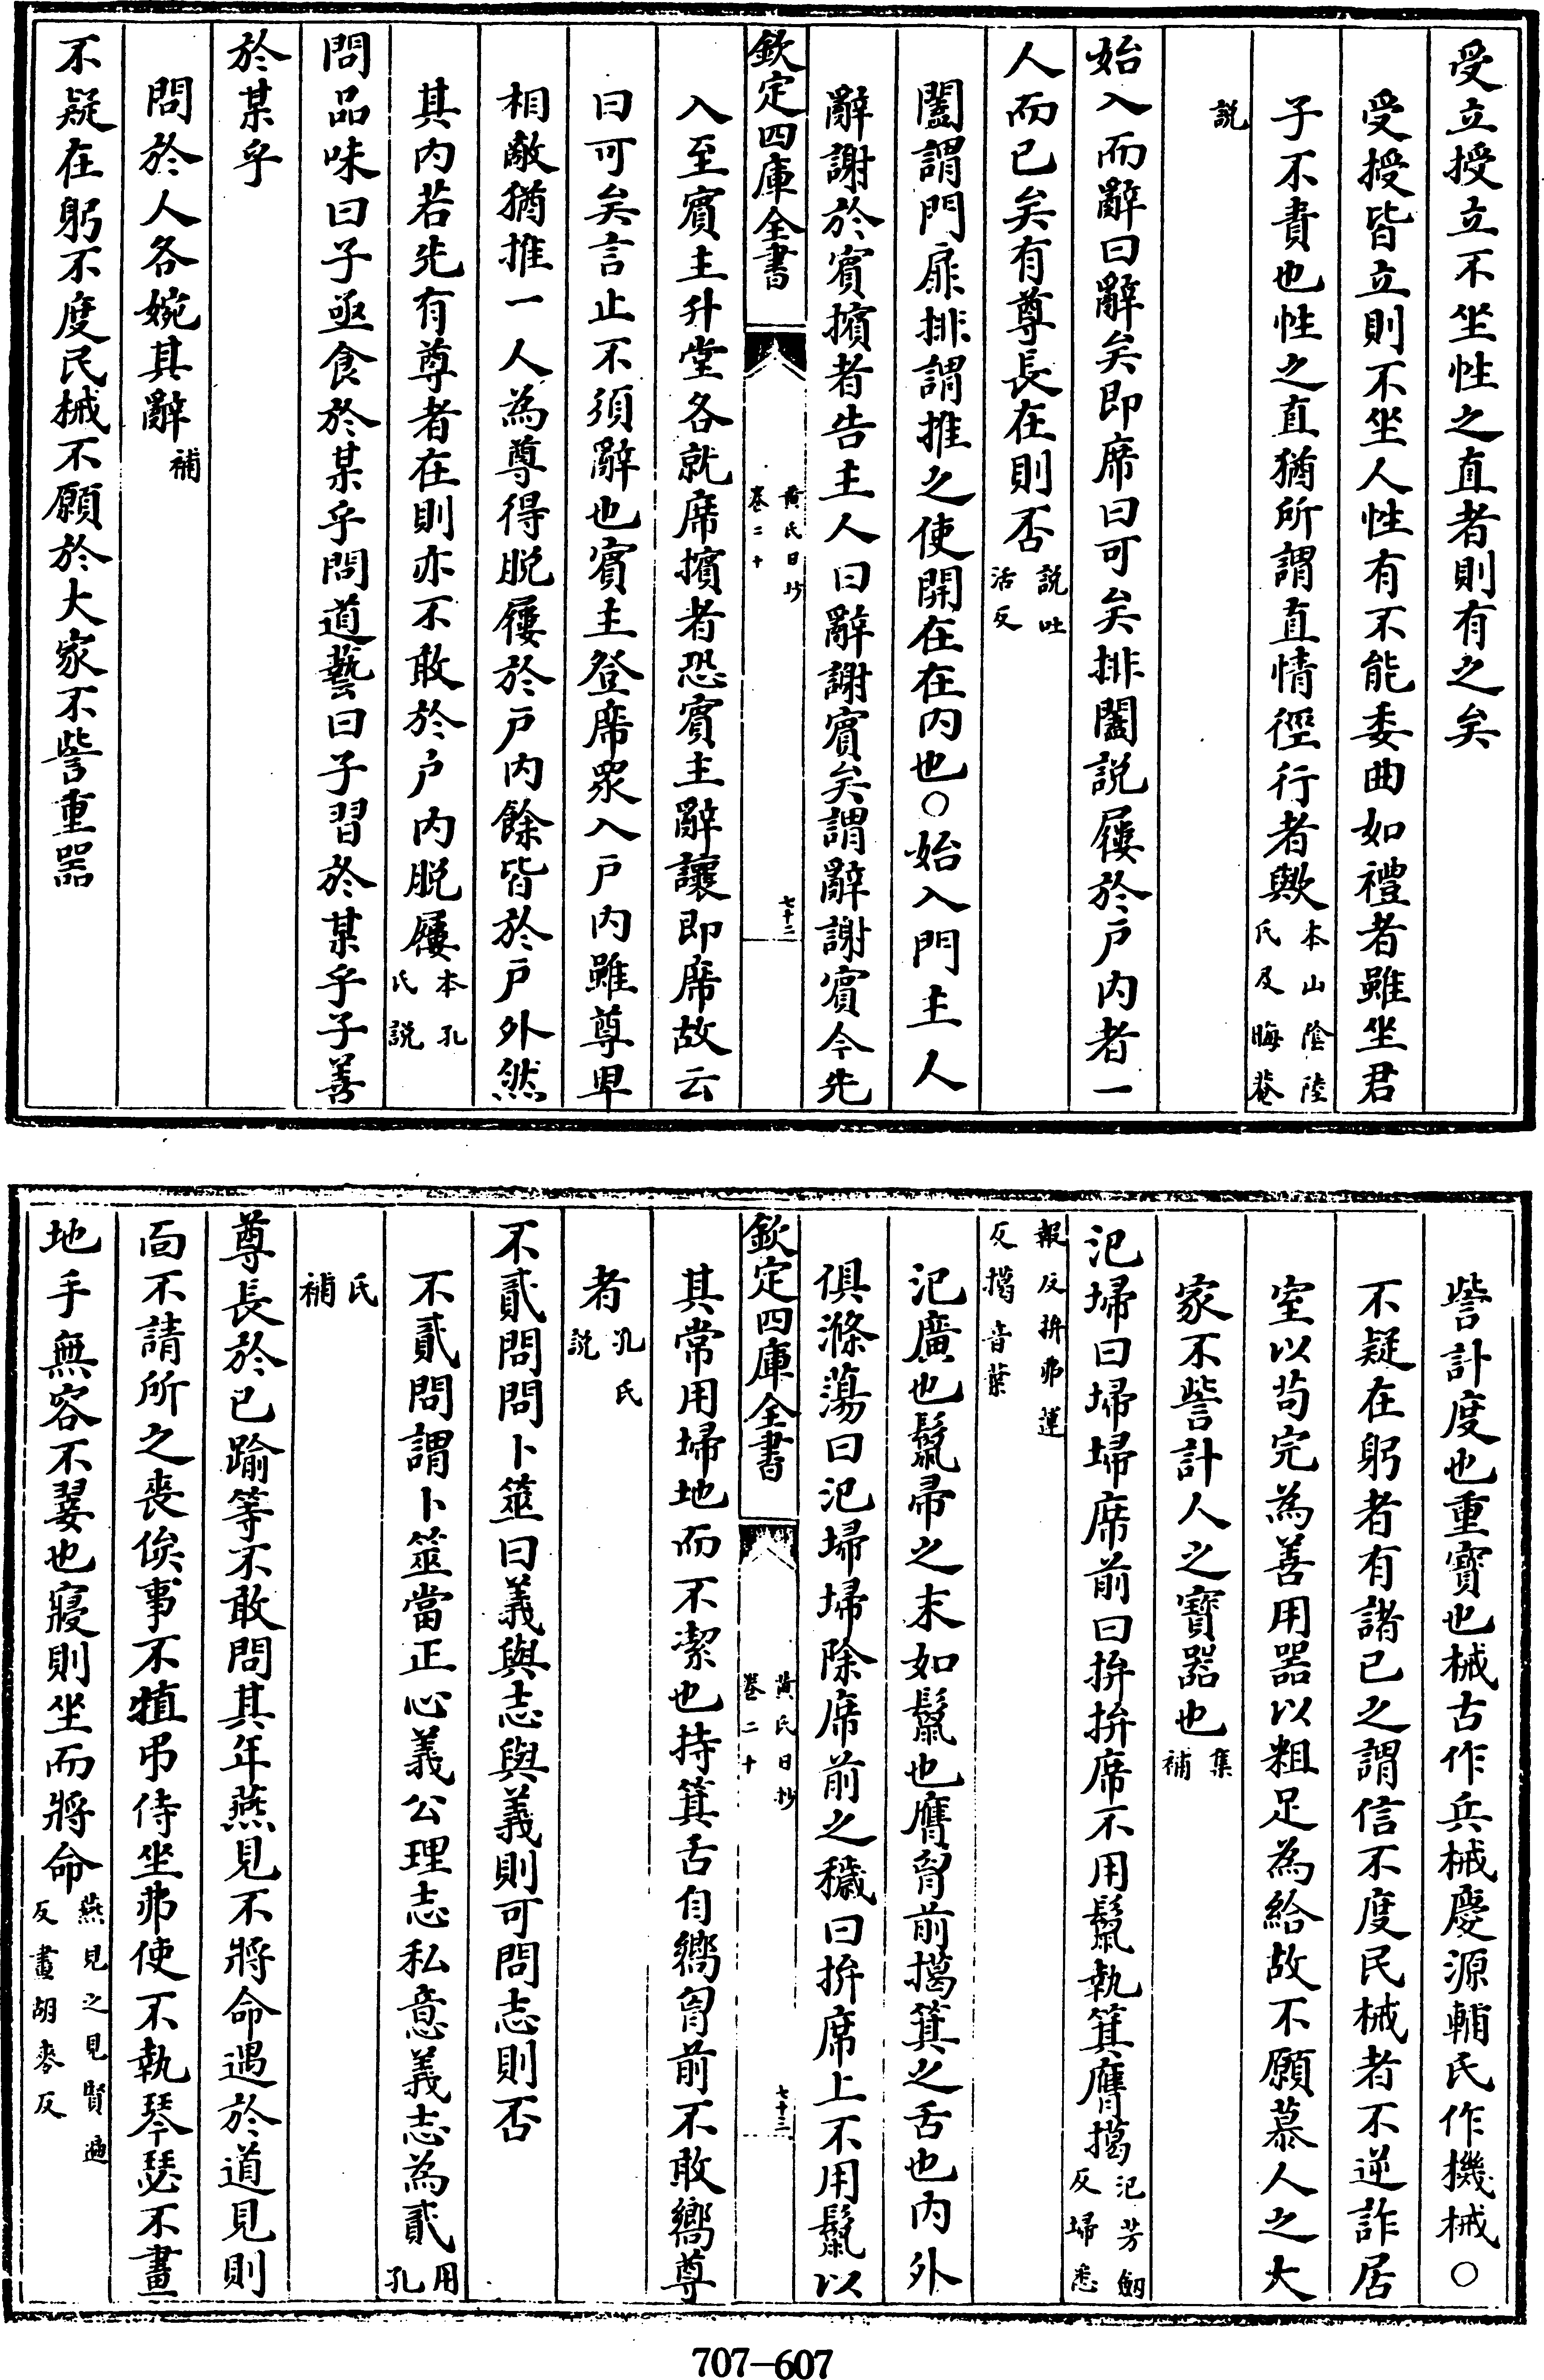 受立授立不坐性之直者則有之矣
受授皆立則不坐人性有不能委曲如禮者雖坐君
子不責也性之直猶所謂直情徑行者歟本山陰陸氏及晦菴
説
始入而辭曰辭矣即席曰可矣排闔説屨於户内者一
人而已矣有尊長在則否説吐活反
闔謂門扉排謂推之使開在在内也○始入門主人
辭謝於賓擯者告主人曰辭謝賓矣謂辭謝賓今先
欽定四庫全書
黄氏日抄
卷二十
七十二
入至賓主升堂各就席擯者恐賓主辭讓即席故云
曰可矣言止不須辭也賓主登席衆入户内雖尊卑
相敵猶推一人為尊得脱屨於户内餘皆於户外然
其内若先有尊者在則亦不敢於户内脱屨本孔氏説
問品味曰子亟食於某乎問道藝曰子習於某乎子善
於某乎
問於人各婉其辭補
不疑在躬不度民械不願於大家不訾重器
訾計度也重寶也械古作兵械慶源輔氏作機械○
不疑在躬者有諸己之謂信不度民械者不逆詐居
室以茍完為善用器以粗足為給故不願慕人之大
家不訾計人之寶器也集補
氾埽曰埽埽席前曰拚拚席不用鬛執箕膺擖氾芳劒反埽悉
報反拚弗運反擖音葉
氾廣也鬛帚之末如鬛也膺胷前擖箕之舌也内外
俱滌蕩曰氾埽埽除席前之穢曰拚席上不用鬛以
欽定四庫全書
黄氏日抄
卷二十
七十三
其常用埽地而不潔也持箕舌自嚮胷前不敢嚮尊
者孔氏説
不貳問問卜筮曰義與志與義則可問志則否
不貳問謂卜筮當正心義公理志私意義志為貳用孔
氏補
尊長於已踰等不敢問其年燕見不將命遇於道見則
面不請所之喪俟事不犆弔侍坐弗使不執琴瑟不畫
地手無容不翣也寢則坐而將命燕見之見賢遍反畫胡麥反
707-607